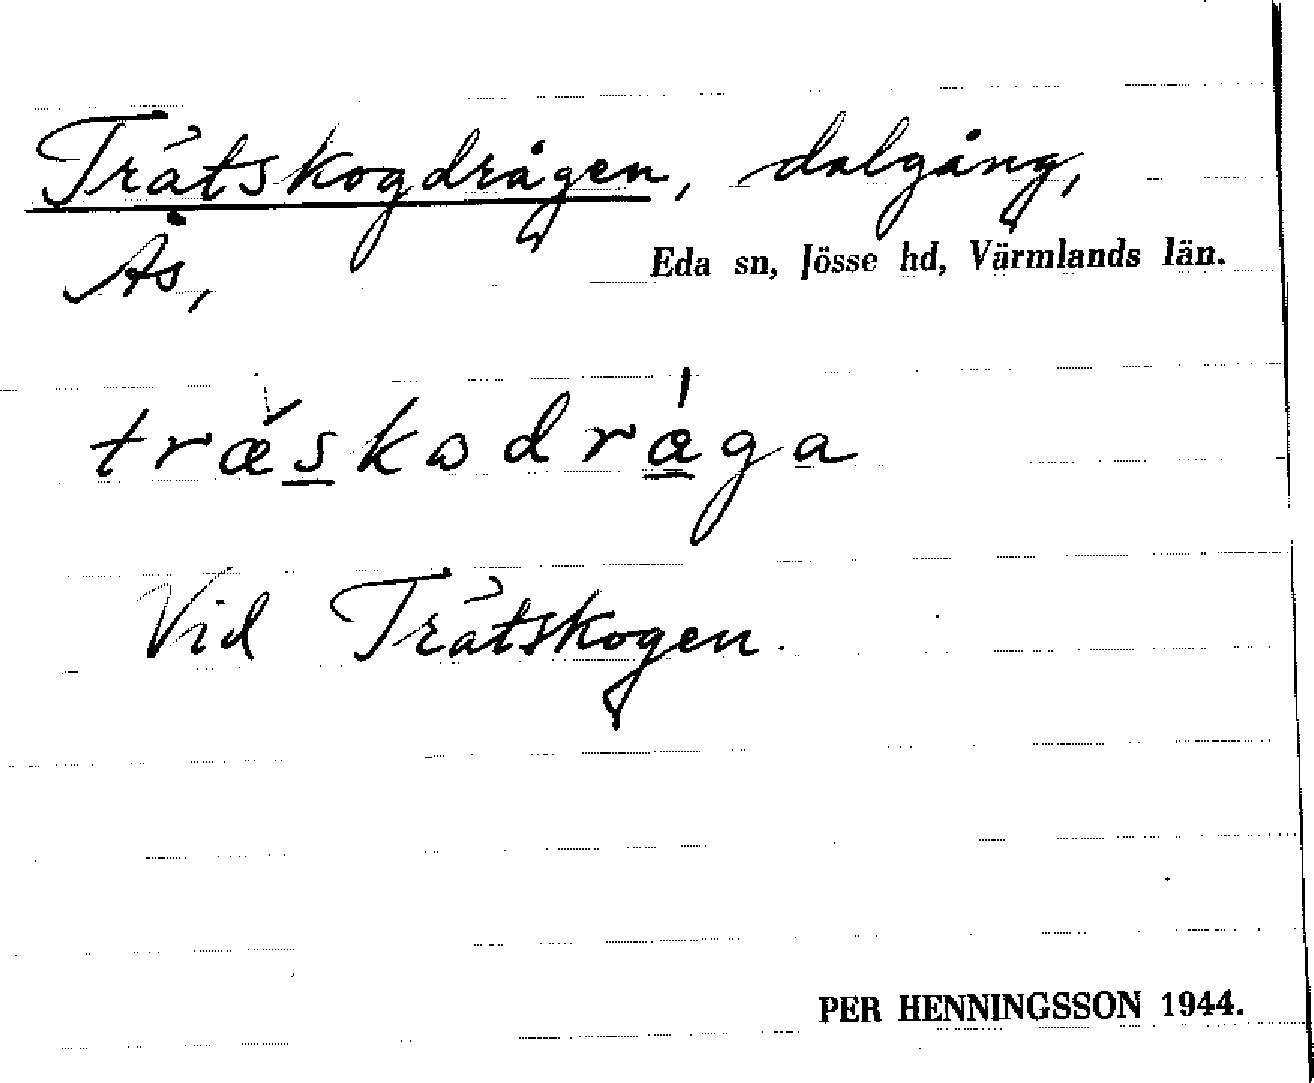 Trätskogdrågen, dalgång,
Ås,
Eda sn, Jösse hd, Värmlands län.
træskodråga
Vid Trätskogen.
PER HENNINGSSON 1944.